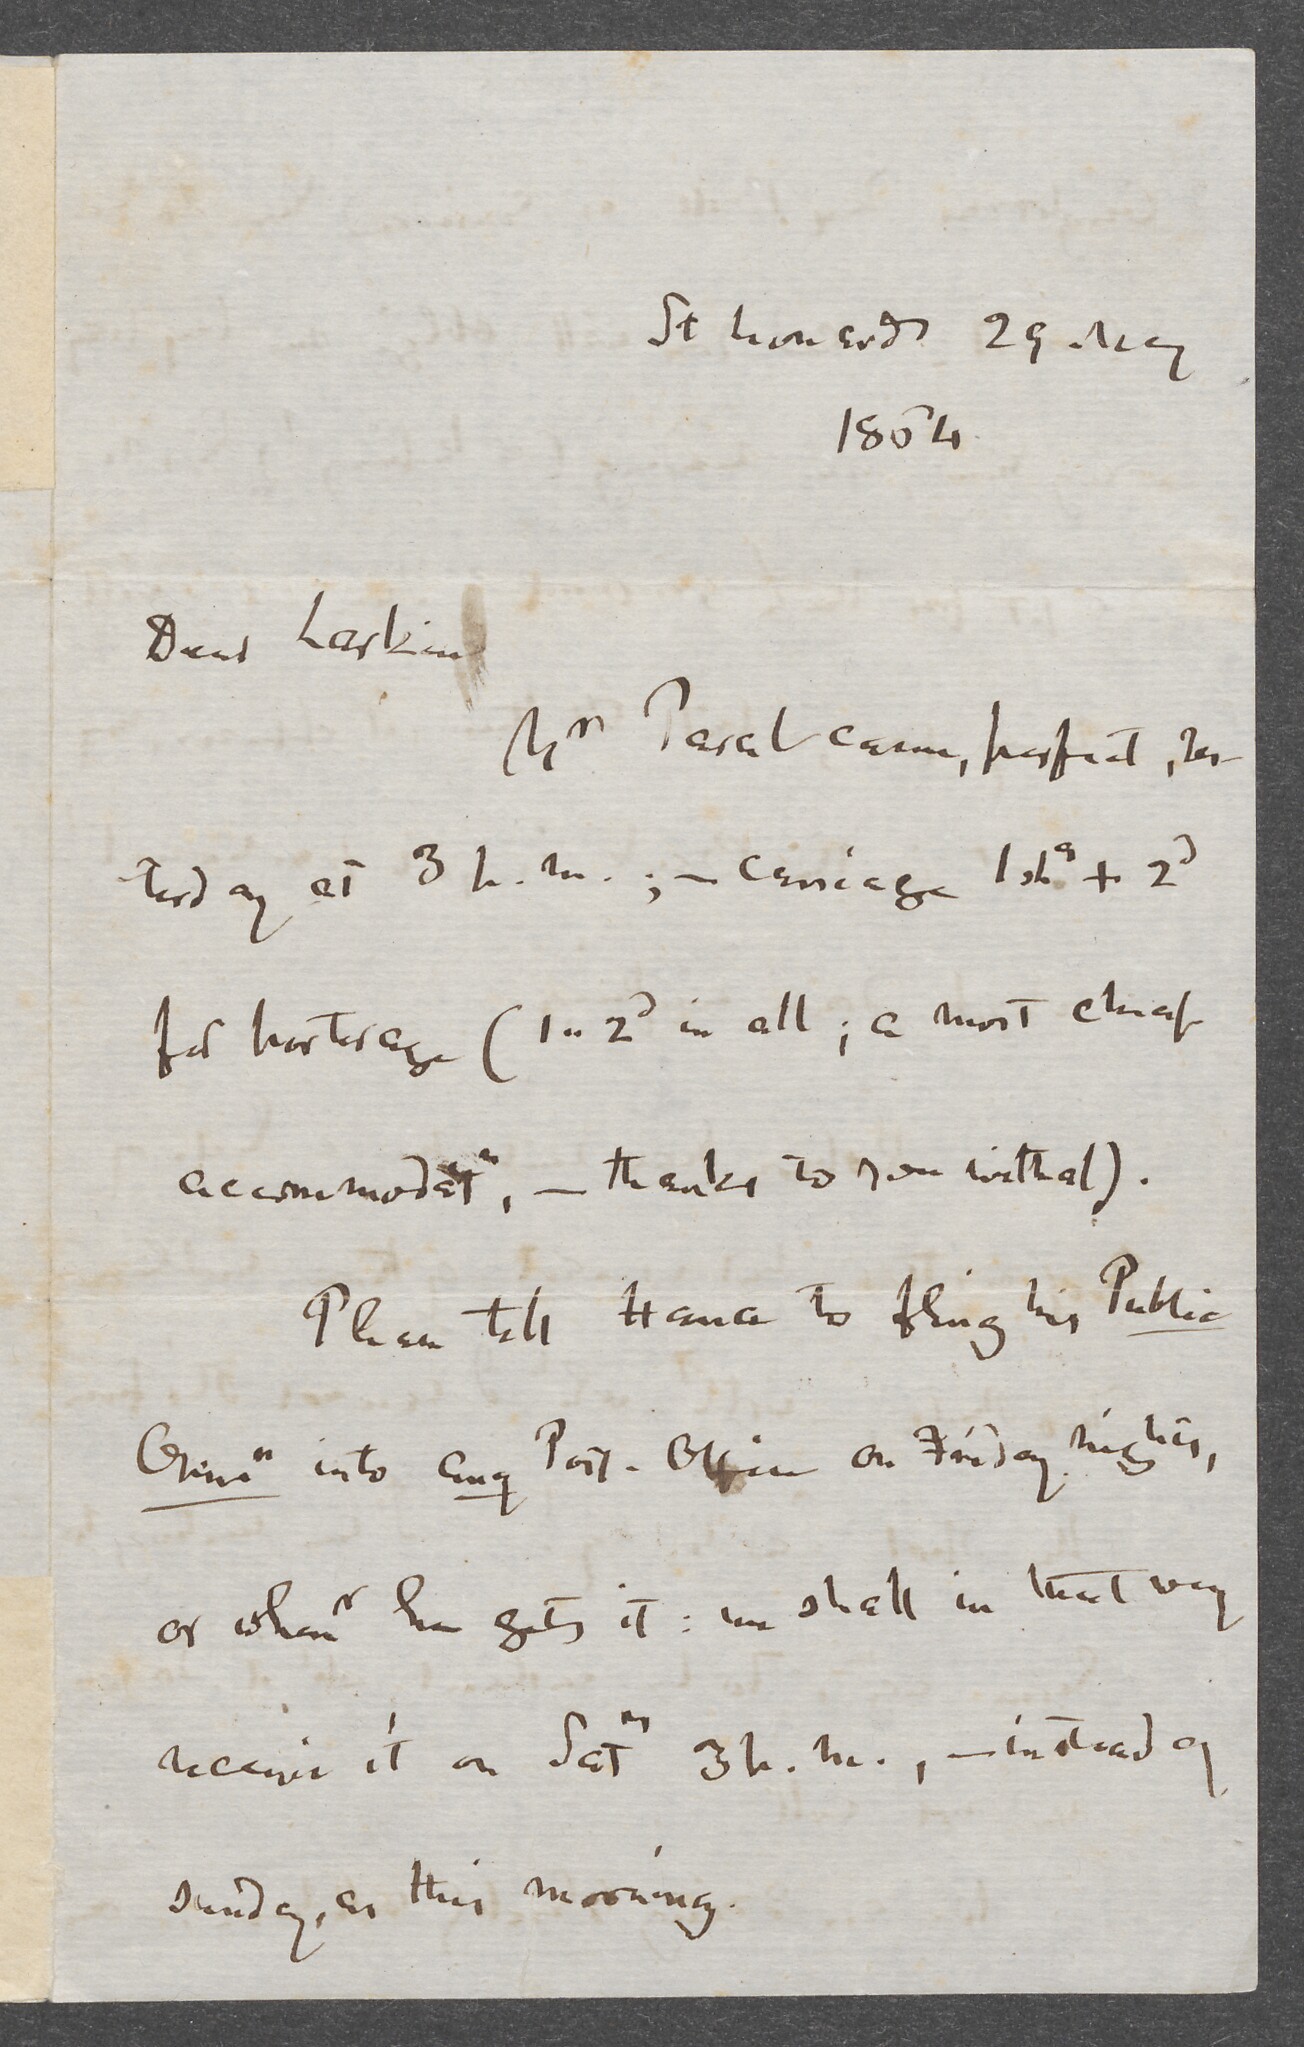 St Leonards 29 May
1864
Dear Larkin
Yr Parcel came, perfect, yes-
terday at 3 p.m.; – carriage 1sh + 2d
for porterage (1 " 2d in all; a most cheap
accommodatn, – thanks to you withal).
Please tell to fling his Public
Opinn into any Post-Office on Friday nights,
or whenr he gets it: we shall in that way
receive it on Saty 3 p.m., – instead of
Sunday, as this morning.